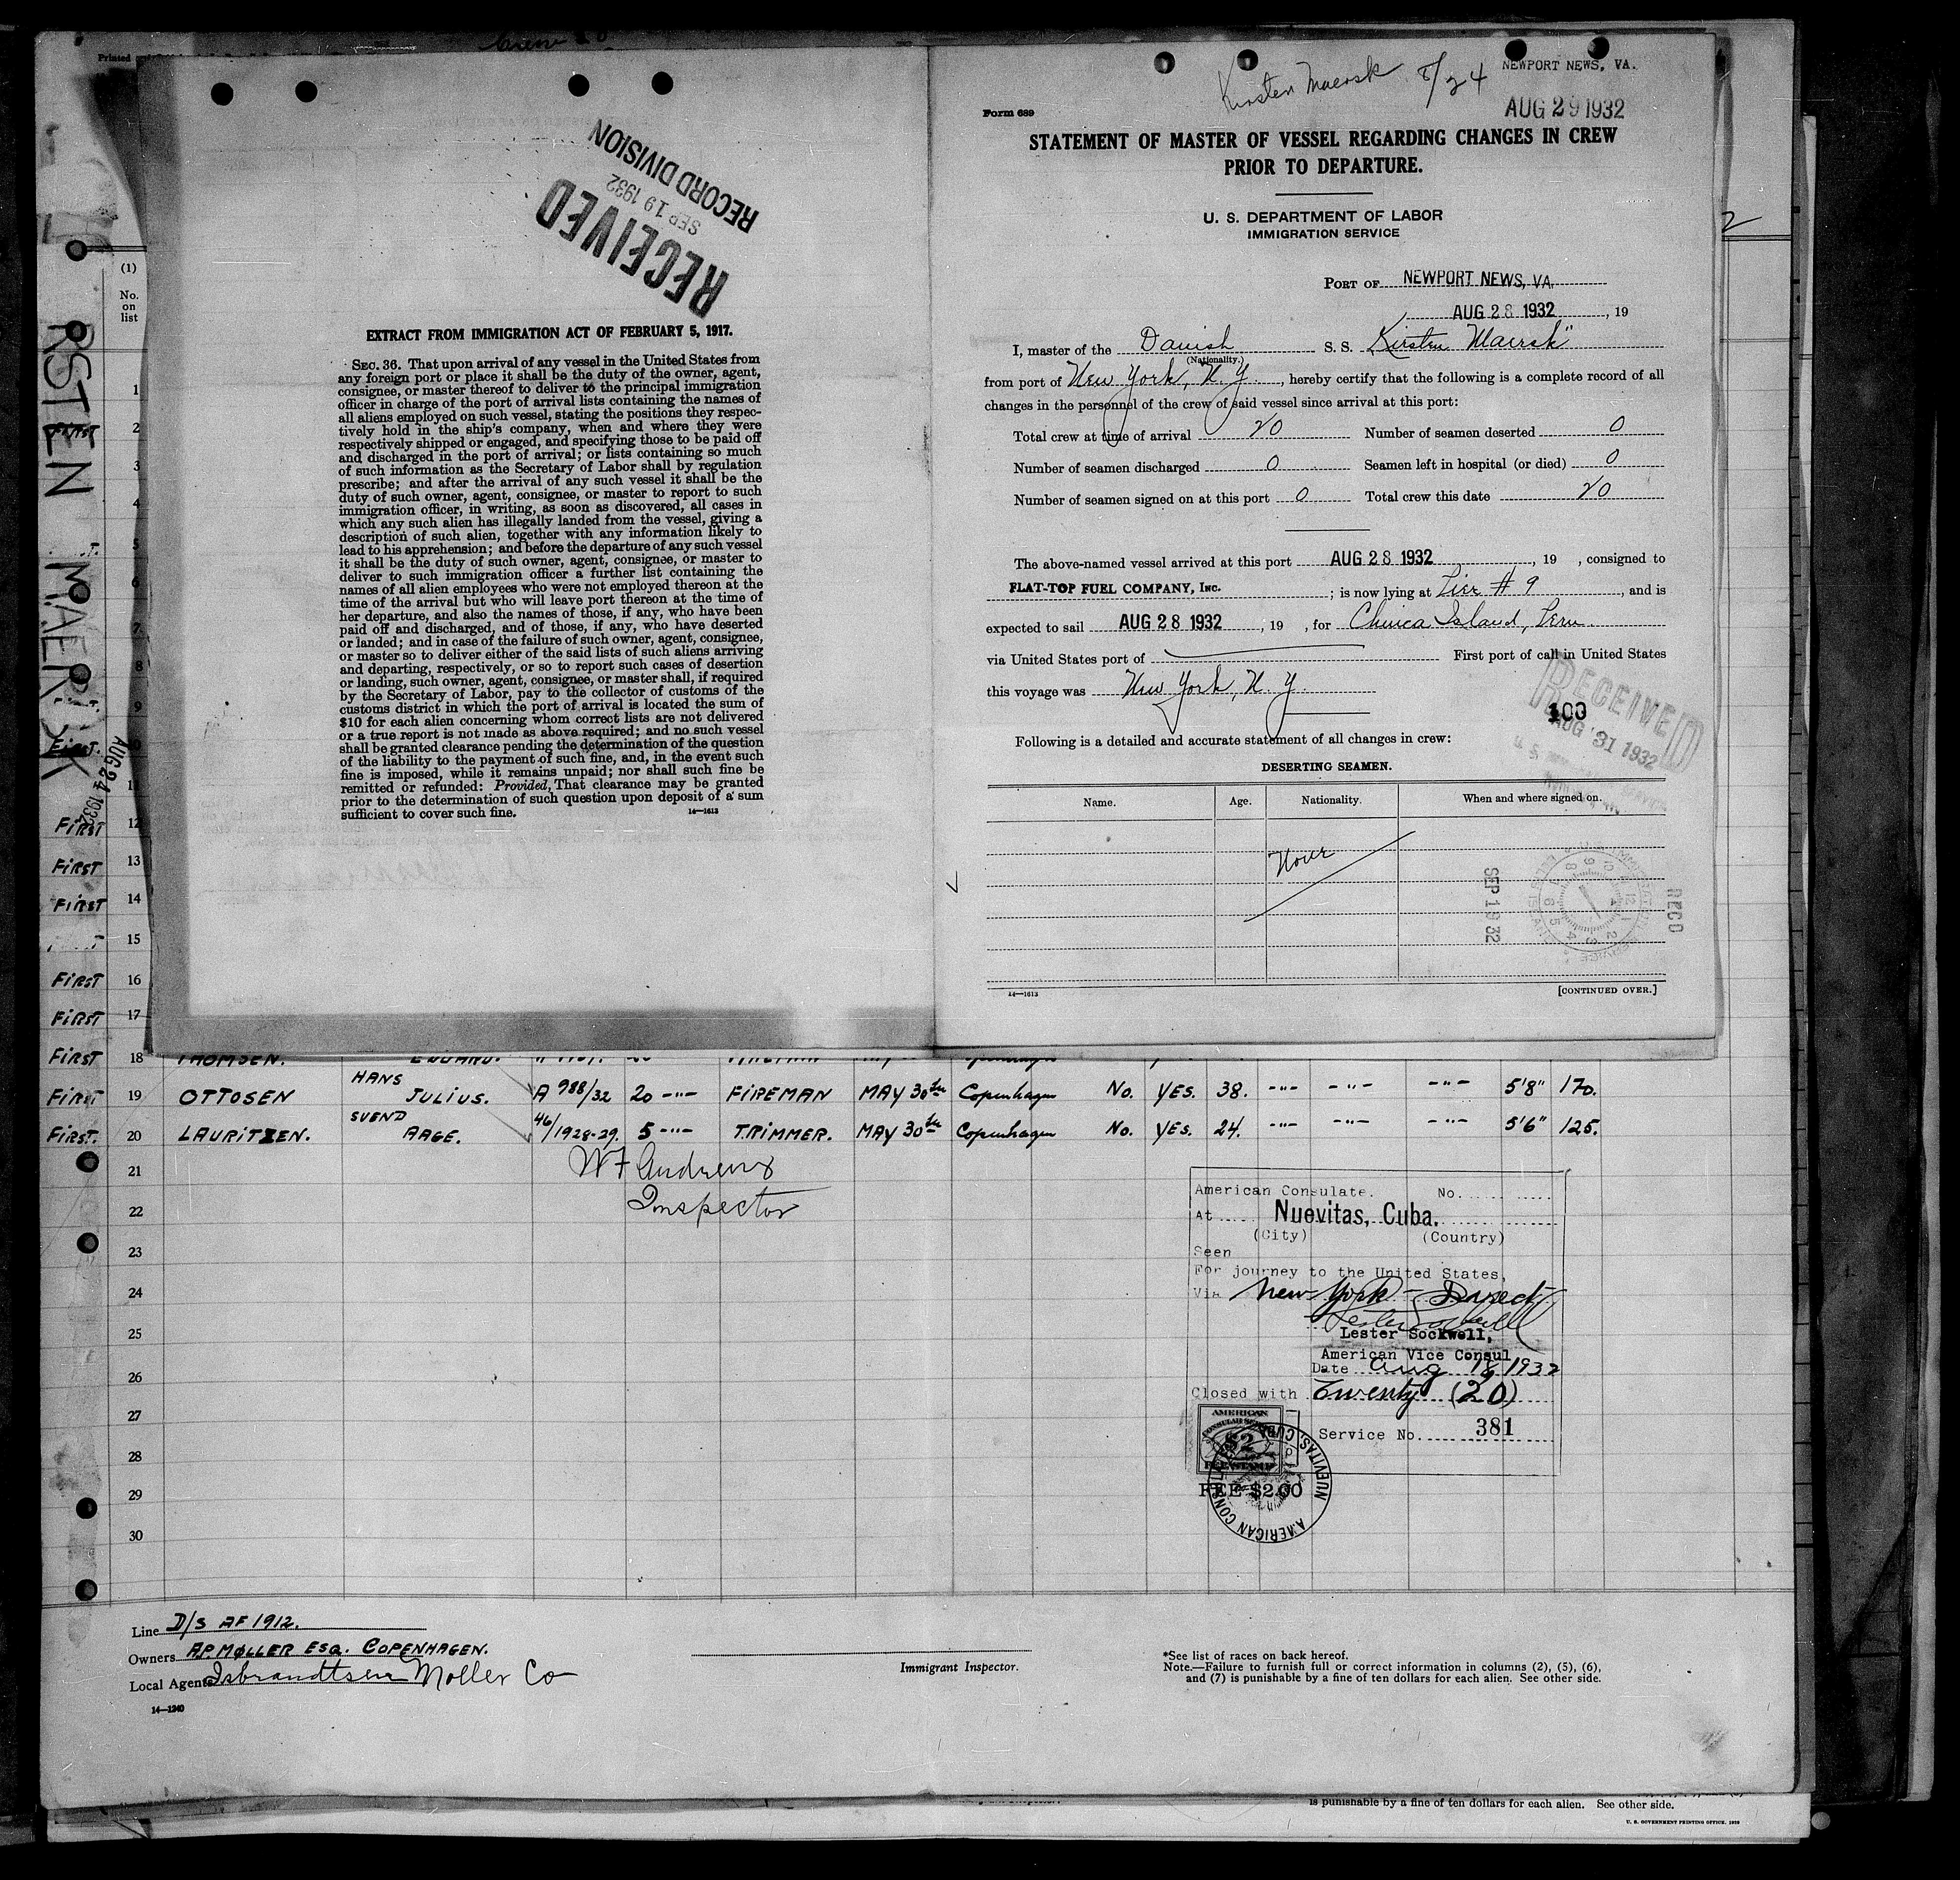 Printed
Crew 20
RECEIVED
SEP 19 1932
RECORD DIVISION
EXTRACT FROM IMMIGRATION ACT OF FEBRUARY 5, 1917.
SEC. 36. That upon arrival of any vessel in the United States from
any foreign port or place it shall be the duty of the owner, agent,
consignee, or master thereof to deliver to the principal immigration
officer in charge of the port of arrival lists containing the names of
all aliens employed on such vessel, stating the positions they respec-
tively hold in the ship's company, when and where they were
respectively shipped or engaged, and specifying those to be paid off
and discharged in the port of arrival; or lists containing so much
of such information as the Secretary of Labor shall by regulation
prescribe; and after the arrival of any such vessel it shall be the
duty of such owner, agent, consignee, or master to report to such
immigration officer, in writing, as soon as discovered, all cases in
which any such alien has illegally landed from the vessel, giving a
description of such alien, together with any information likely to
lead to his apprehension; and before the departure of any such vessel
it shall be the duty of such owner, agent, consignee, or master to
deliver to such immigration officer a further list containing the
names of all alien employees who were not employed thereon at the
time of the arrival but who will leave port thereon at the time of
her departure, and also the names of those, if any, who have been
paid off and discharged, and of those, if any, who have deserted
or landed; and in case of the failure of such owner, agent, consignee,
or master so to deliver either of the said lists of such aliens arriving
and departing, respectively, or so to report such cases of desertion
or landing, such owner, agent, consignee, or master shall, if required
by the Secretary of Labor, pay to the collector of customs of the
customs district in which the port of arrival is located the sum of
$10 for each alien concerning whom correct lists are not delivered
or a true report is not made as above required; and no such vessel
shall be granted clearance pending the determination of the question
of the liability to the payment of such fine, and, in the event such
fine is imposed, while it remains unpaid; nor shall such fine be
remitted or refunded: Provided, That clearance may be granted
prior to the determination of such question upon deposit of a sum
sufficient to cover such fine.
14—1613
Kirsten Maersk 8/24
NEWPORT NEWS, VA.
AUG 29 1932
Form 689
STATEMENT OF MASTER OF VESSEL REGARDING CHANGES IN CREW
PRIOR TO DEPARTURE.
U. S. DEPARTMENT OF LABOR
IMMIGRATION SERVICE
PORT OF NEWPORT NEWS, VA.
AUG 28 1932, 19
I, master of the Danish S. S. Kirsten Maersk"
(Nationality.)
from port of New York, N. Y., hereby certify that the following is a complete record of all
changes in the personnel of the crew of said vessel since arrival at this port:
Total crew at time of arrival 20 Number of seamen deserted 0
Number of seamen discharged 0 Seamen left in hospital (or died) 0
Number of seamen signed on at this port 0 Total crew this date 20
The above-named vessel arrived at this port AUG 28 1932, 19 , consigned to
FLAT-TOP FUEL COMPANY, Inc.; is now lying at Pier # 9, and is
expected to sail AUG 28 1932, 19 , for Chinca Island, Peru
via United States port of First port of call in United States
this voyage was New York, N. Y.
100
RECEIVED
AUG 31 1932
Following is a detailed and accurate statement of all changes in crew:
DESERTING SEAMEN.
Name. Age. Nationality. When and where signed on.
None
SEP 19 32
RECD
14—1613
[CONTINUED OVER.]
(1)
No.
on
list
RSTEN MAERSK
AUG 24 1932
1
2
3
4
5
6
7
8
9
First. 10
11
First 12
First 13
First 14
15
First 16
First 17
First 18 THOMSEN. EDUARD. FIREMAN Copenhagen
First 19 OTTOSEN HANS JULIUS. A 988/32 20 -"- FIREMAN MAY 30th Copenhagen No. YES. 38. -"- -"- -"- 5'8" 170.
First. 20 LAURITZEN. SVEND AAGE. 46/1928-29. 5 -"- TRIMMER. MAY 30th Copenhagen No. YES. 24. -"- -"- -"- 5'6" 125.
21 W F Andrews
22 Inspector
23
24
25
26
27
28
29
30
American Consulate. No.
At Nuevitas, Cuba.
(City) (Country)
Seen
For journey to the United States,
Via New York - Direct
Lester Sockwell
Lester Sockwell,
American Vice Consul
Date Aug 18, 1932
Closed with Twenty (20)
Service No. 381
AMERICAN
$2
FEE STAMP
FEE $2.00
AMERICAN CONSULATE NUEVITAS, CUBA
Line D/S AF 1912.
Owners A.P. MØLLER ESQ. COPENHAGEN.
Local Agents Isbrandtsen Moller Co
14—1240
Immigrant Inspector.
*See list of races on back hereof.
Note.—Failure to furnish full or correct information in columns (2), (5), (6),
and (7) is punishable by a fine of ten dollars for each alien. See other side.
is punishable by a fine of ten dollars for each alien. See other side.
U. S. GOVERNMENT PRINTING OFFICE.